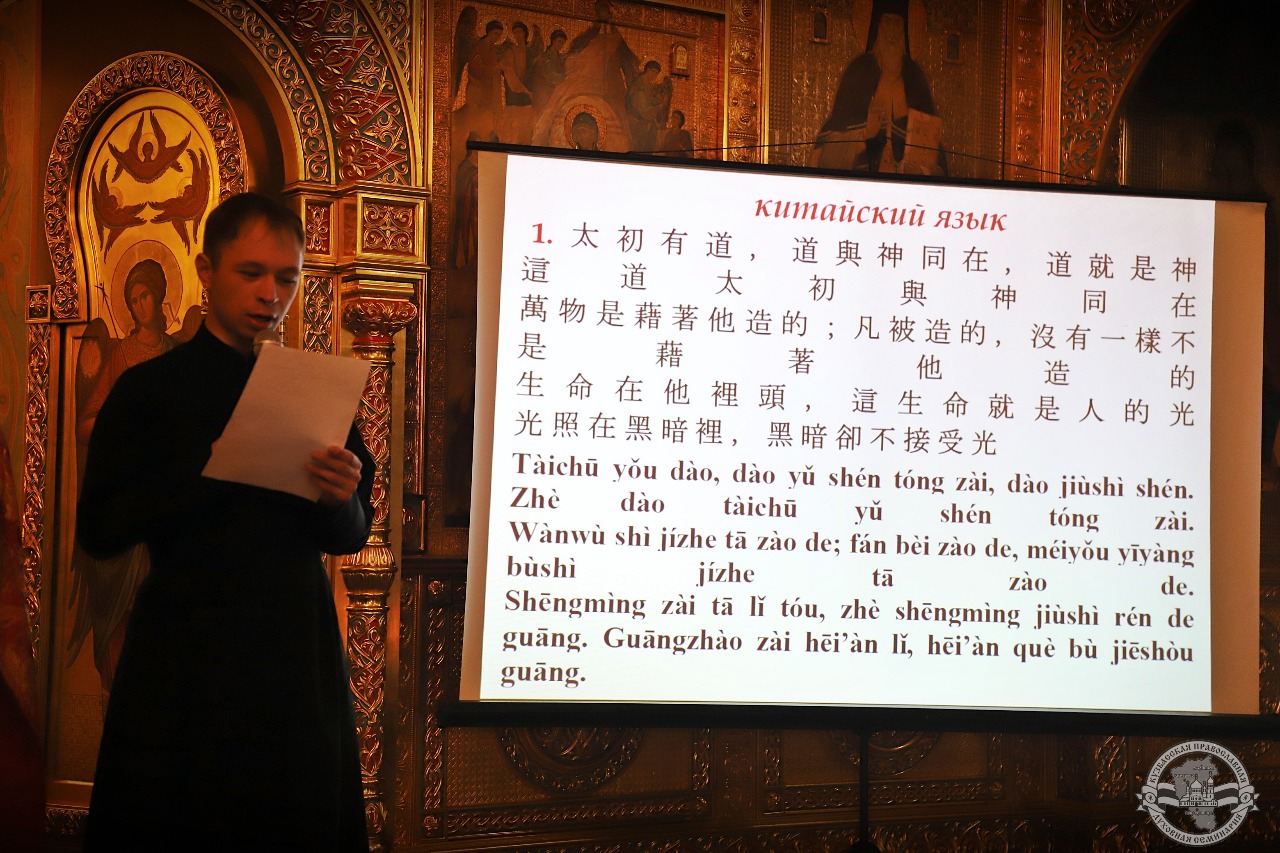 китайский язык
1. 太初有道，道與神同在，道就是神
這道太初與神同在
萬物是藉著他造的；凡被造的，沒有一樣不
是藉著他造的
生命在他裡頭，這生命就是人的光
光照在黑暗裡，黑暗卻不接受光
Tàichū yǒu dào, dào yǔ shén tóng zài, dào jiùshì shén.
Zhè dào tàichū yǔ shén tóng zài.
Wànwù shì jízhe tā zào de; fán bèi zào de, méiyǒu yīyàng
bùshì jízhe tā zào de.
Shēngmìng zài tā lǐ tóu, zhè shēngmìng jiùshì rén de
guāng. Guāngzhào zài hēi’àn lǐ, hēi’àn què bù jiēshòu
guāng.
КУЗБАССКАЯ ПРАВОСЛАВНАЯ
ДУХОВНАЯ СЕМИНАРИЯ